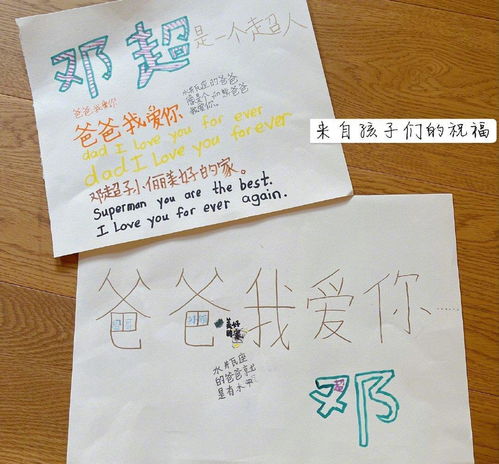 邓超是一个超人
爸爸我爱你
水瓶座的爸爸
我爱你。
爸爸我爱你
dad I love you for ever
dad I love you forever
邓超孙俪美好的家。
Superman you are the best.
I love you for ever again.
来自孩子们的祝福
爸爸我爱你……
水瓶座
的爸爸就
是有水平
邓
超